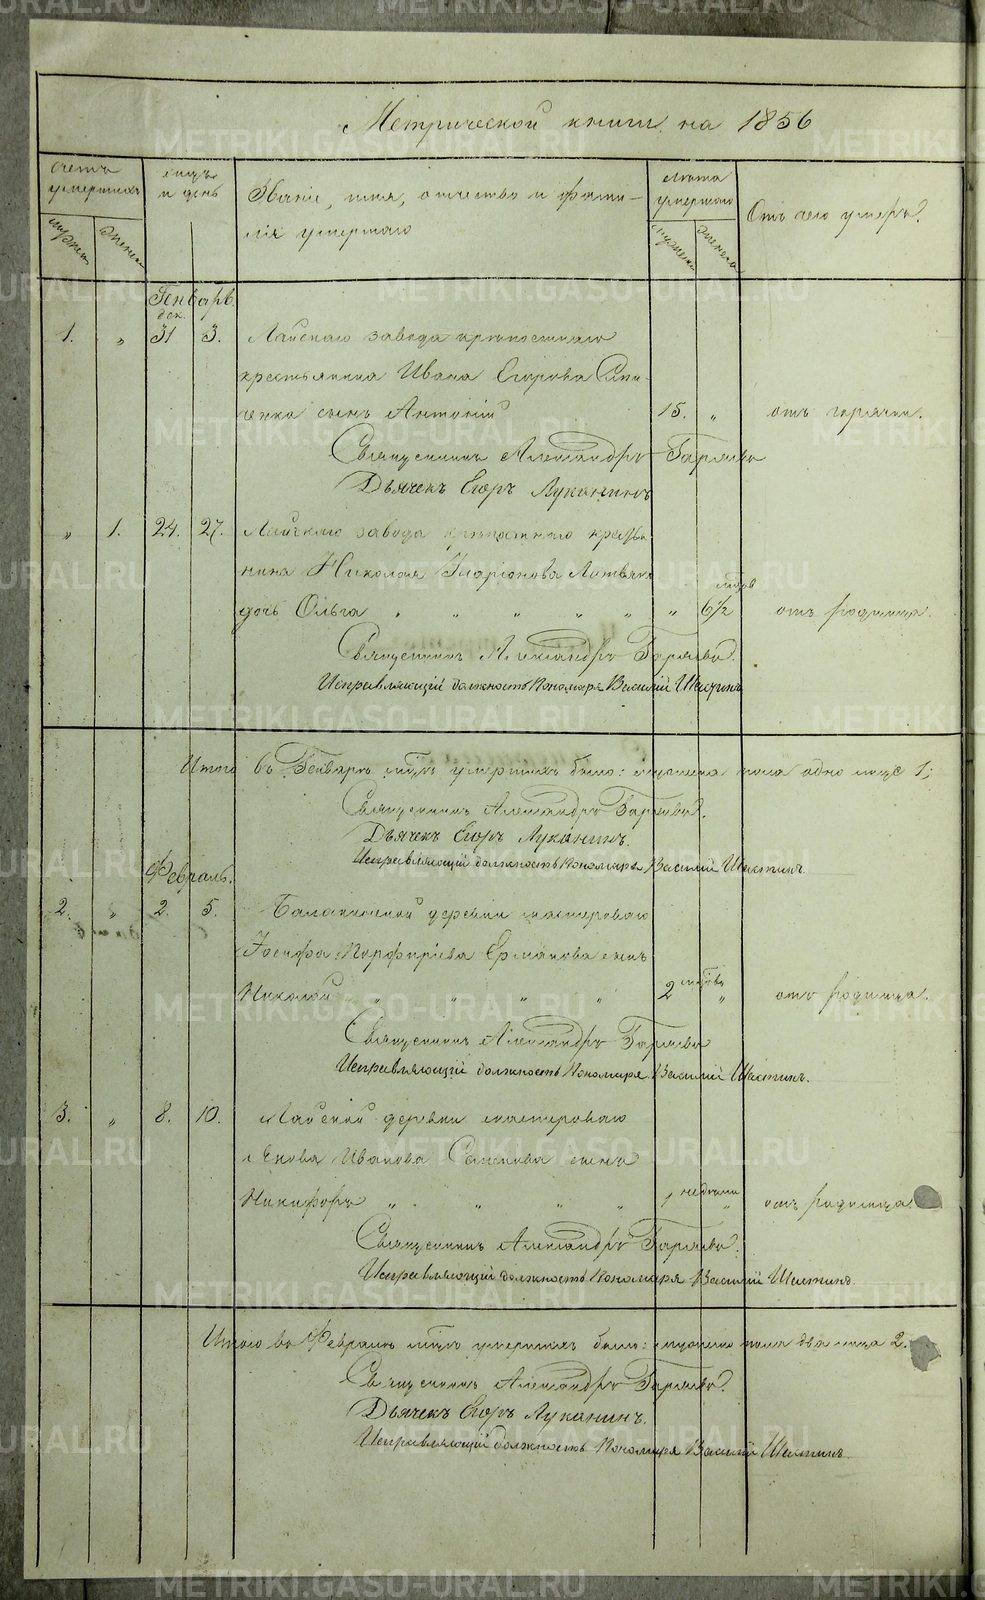 Метрической книги на 1856
Счетъ умершихъ
мужеска
женска
м-цъ и день
Званіе, имя, отчество и фами-
лія умершаго
Лѣта умершаго
мужеска
женска
Отъ чего умеръ.
Генварь.
дек.
1. „ 31 3. Лайскаго завода крѣпостнаго
крестьянина Ивана Егорова
сынъ Антоній 15. „ отъ горячки.
Священникъ Александръ Гаряевъ
Дьячекъ Егоръ Луканинъ
„ 1. 24. 27. Лайскаго завода крѣпостнаго кресть-
нина Николая Иларіонова
дочь Ольга „ „ „ „ „ „ 6 1/2 отъ родимца.
Священникъ Александръ Гаряевъ.
Исправляющій должность Пономаря Василій
Итого въ Генварѣ умершихъ было: мужеска пола одно лице 1;
Священникъ Александръ Гаряевъ.
Дьячекъ Егоръ Луканинъ.
Исправляющій должность Пономаря Василій
Февраль.
2. „ 2. 5. деревни мастероваго
Іосифа Порфирьева Ермакова сынъ
Николай „ „ „ „ 2 „ отъ родимца.
Священникъ Александръ Гаряевъ
Исправляющій должность Пономаря Василій
3. „ 8. 10. Лайской деревни мастероваго
Якова Иванова сынъ
Никифоръ „ „ „ „ 1 недѣли „ отъ родимца
Священникъ Александръ Гаряевъ.
Исправляющій должность Пономаря Василій
Итого въ Февралѣ умершихъ было: мужеска пола два лица 2.
Священникъ Александръ Гаряевъ.
Дьячекъ Егоръ Луканинъ.
Исправляющій должность Пономаря Василій
METRIKI.GASO-URAL.RU